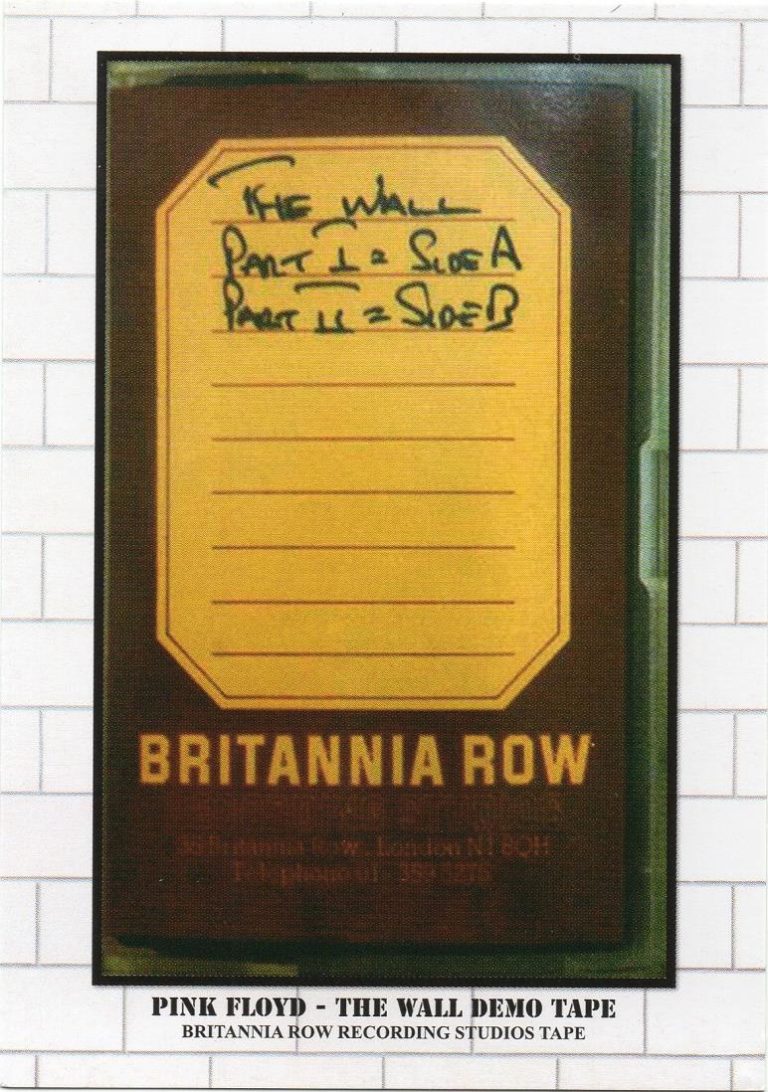 THE WALL
PART I = SIDE A
PART II = SIDE B
BRITANNIA ROW
Britannia Row, London N1 8QH
Telephone 01
PINK FLOYD - THE WALL DEMO TAPE
BRITANNIA ROW RECORDING STUDIOS TAPE